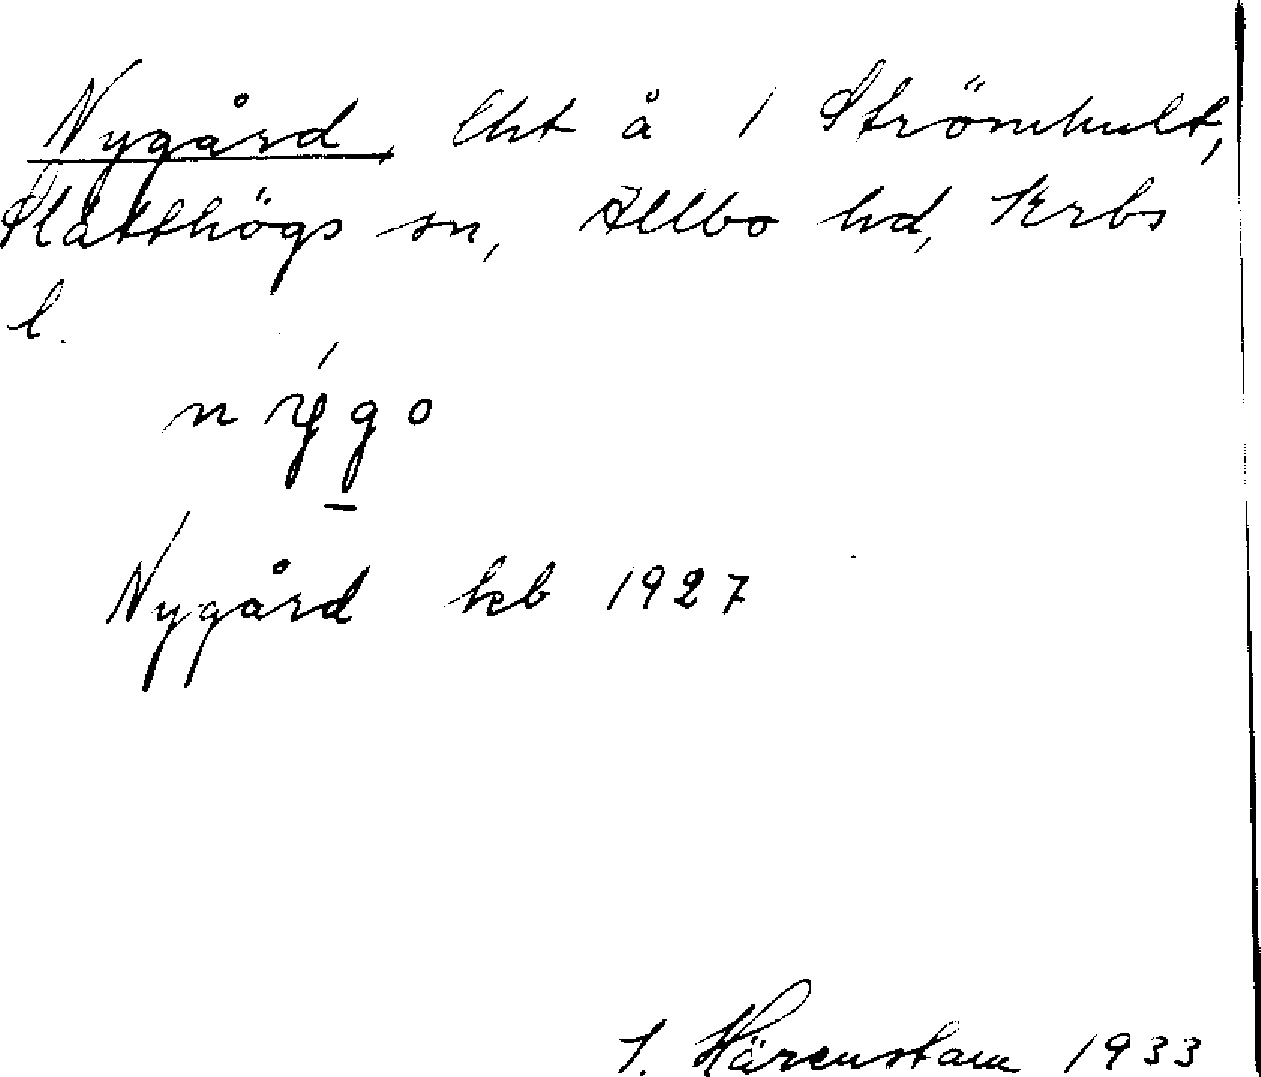 Nygård, lht å 1 Strömhult,
Slätthögs sn, Allbo hd, Krbs
l.
nýgo
Nygård kb 1927
I. Härenstam 1933